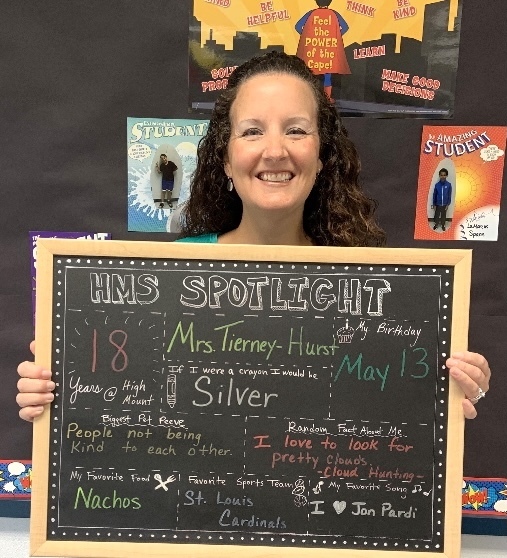 BE HELPFUL
THINK
BE KIND
Feel the
POWER
of the
Cape!
LEARN
MAKE GOOD
DECISIONS
STUDENT
AMAZING
STUDENT
HMS SPOTLIGHT
18
Years @ High
Mount
Mrs. Tierney-Hurst
If I were a crayon I would be
Silver
My Birthday
May 13
Biggest Pet Peeve
People not being
kind to each other.
Random Fact About Me
I love to look for
pretty clouds
-Cloud Hunting-
My Favorite Food
Nachos
Favorite Sports Team
St. Louis
Cardinals
My Favorite Song
I ♥ Jon Pardi